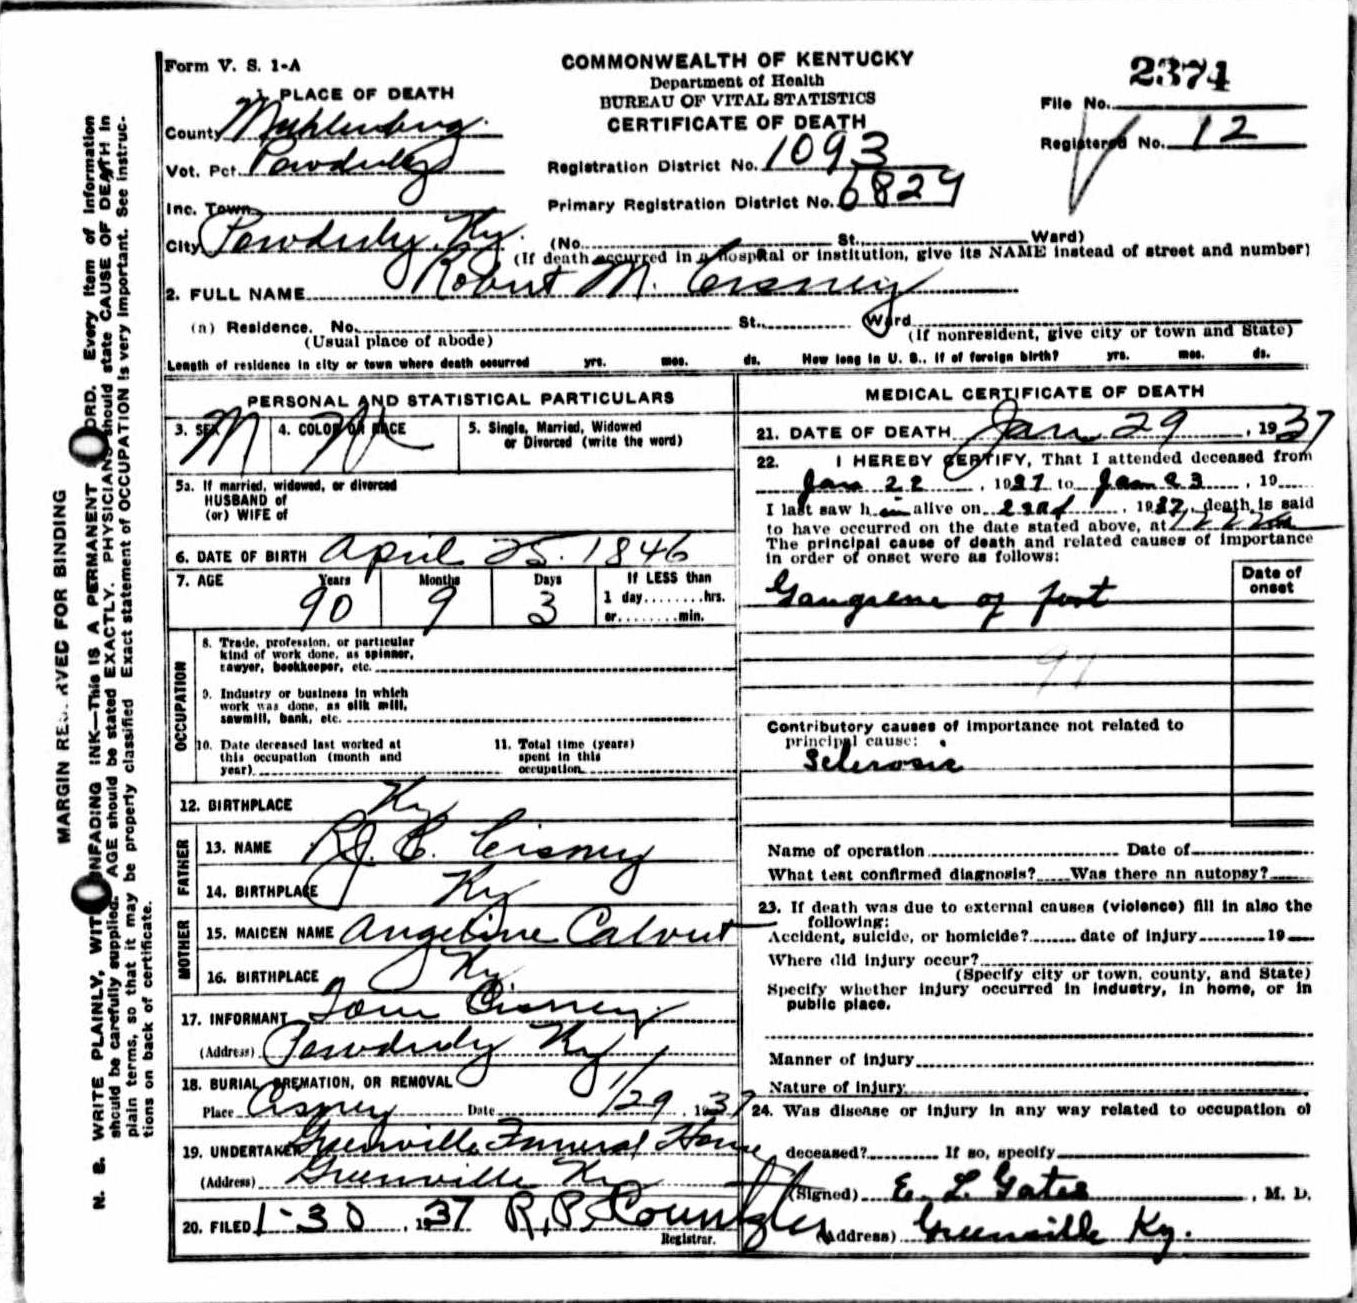 Form V. S. 1-A
COMMONWEALTH OF KENTUCKY
Department of Health
BUREAU OF VITAL STATISTICS
CERTIFICATE OF DEATH
2374
File No.
Registered No. 12
1. PLACE OF DEATH
County Muhlenberg.
Vot. Pct. Powderly
Inc. Town
City Powderly, Ky.
Registration District No. 1093
Primary Registration District No. 6829
(No. St. Ward)
(If death occurred in a hospital or institution, give its NAME instead of street and number)
2. FULL NAME Robert M. Cisney
(a) Residence. No. St. Ward
(Usual place of abode)
(If nonresident, give city or town and State)
Length of residence in city or town where death occurred yrs. mos. ds. How long in U. S., if of foreign birth? yrs. mos. ds.
PERSONAL AND STATISTICAL PARTICULARS
3. SEX M
4. COLOR OR RACE W
5. Single, Married, Widowed
or Divorced (write the word)
5a. If married, widowed, or divorced
HUSBAND of
(or) WIFE of
6. DATE OF BIRTH April 25. 1846
7. AGE Years Months Days If LESS than
90 9 3 1 day, hrs.
or min.
OCCUPATION
8. Trade, profession, or particular
kind of work done, as spinner,
sawyer, bookkeeper, etc.
9. Industry or business in which
work was done, as silk mill,
sawmill, bank, etc.
10. Date deceased last worked at
this occupation (month and
year)
11. Total time (years)
spent in this
occupation
12. BIRTHPLACE Ky
FATHER
13. NAME R.J. C. Cisney
14. BIRTHPLACE Ky
MOTHER
15. MAIDEN NAME Angeline Calvert
16. BIRTHPLACE Ky
17. INFORMANT Tom Cisney
(Address) Powderly Ky
18. BURIAL, CREMATION, OR REMOVAL
Place Cisney Date 1/29, 1937
19. UNDERTAKER Greenville Funeral Home
(Address) Greenville Ky
20. FILED 1-30, 1937 R. P. Countzler
Registrar.
MEDICAL CERTIFICATE OF DEATH
21. DATE OF DEATH Jan 29, 1937
22. I HEREBY CERTIFY, That I attended deceased from
Jan 22, 1937 to Jan 23, 19
I last saw him alive on 23rd, 1937, death is said
to have occurred on the date stated above, at
The principal cause of death and related causes of importance
in order of onset were as follows:
Date of
onset
Gangrene of foot
97
Contributory causes of importance not related to
principal cause:
Sclerosis
Name of operation Date of
What test confirmed diagnosis? Was there an autopsy?
23. If death was due to external causes (violence) fill in also the
following:
Accident, suicide, or homicide? date of injury 19
Where did injury occur?
(Specify city or town, county, and State)
Specify whether injury occurred in industry, in home, or in
public place.
Manner of injury
Nature of injury
24. Was disease or injury in any way related to occupation of
deceased? If so, specify
(Signed) E. L. Gates, M. D.
(Address) Greenville Ky.
MARGIN RESERVED FOR BINDING
N. B. WRITE PLAINLY, WITH UNFADING INK—THIS IS A PERMANENT RECORD. Every item of information
should be carefully supplied. AGE should be stated EXACTLY. PHYSICIANS should state CAUSE OF DEATH in
plain terms, so that it may be properly classified. Exact statement of OCCUPATION is very important. See instruc-
tions on back of certificate.